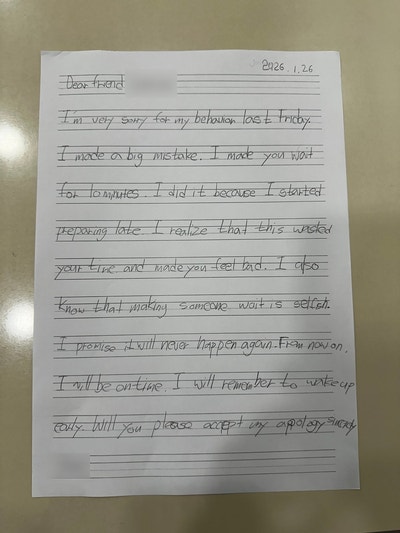 2026.1.26
Dear friend
I'm very sorry for my behavior last Friday.
I made a big mistake. I made you wait
for 10 minutes. I did it because I started
preparing late. I realize that this wasted
your time and made you feel bad. I also
know that making someone wait is selfish.
I promise it will never happen again. From now on,
I will be on time. I will remember to wake up
early. Will you please accept my apology